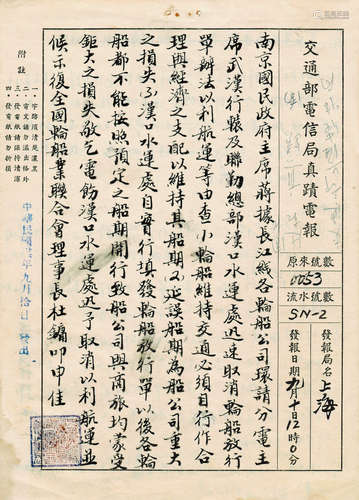 交通部電信局真蹟電報
原來號數
0053
流水號數
SN-2
發報局名
上海
發報日期
九月十日12時0分
南京國民政府主席蔣據長江綫各輪船公司環請分電主
席武漢行轅及聯勤總部漢口水運處迅速取消輪船放行
單辦法以利航運等由查小輪船維持交通必須自行作合
理與經濟之支配以維持其船期又延誤船期為船公司重大
之損失示漢口水運處自實行填發輪船放行單以後各輪
船都不能按照預定之船期開行致船公司與商旅均蒙受
鉅大之損失敬乞電飭漢口水運處迅予取消以利航運並
候示復全國輪船業聯合會理事長杜鏞叩申佳
中華民國 年九月拾日發出
附註
一、字跡須清楚濃黑
二、寫文請勿溢出格外
三、發寫紙請保持清潔
四、發寫紙請勿折摺